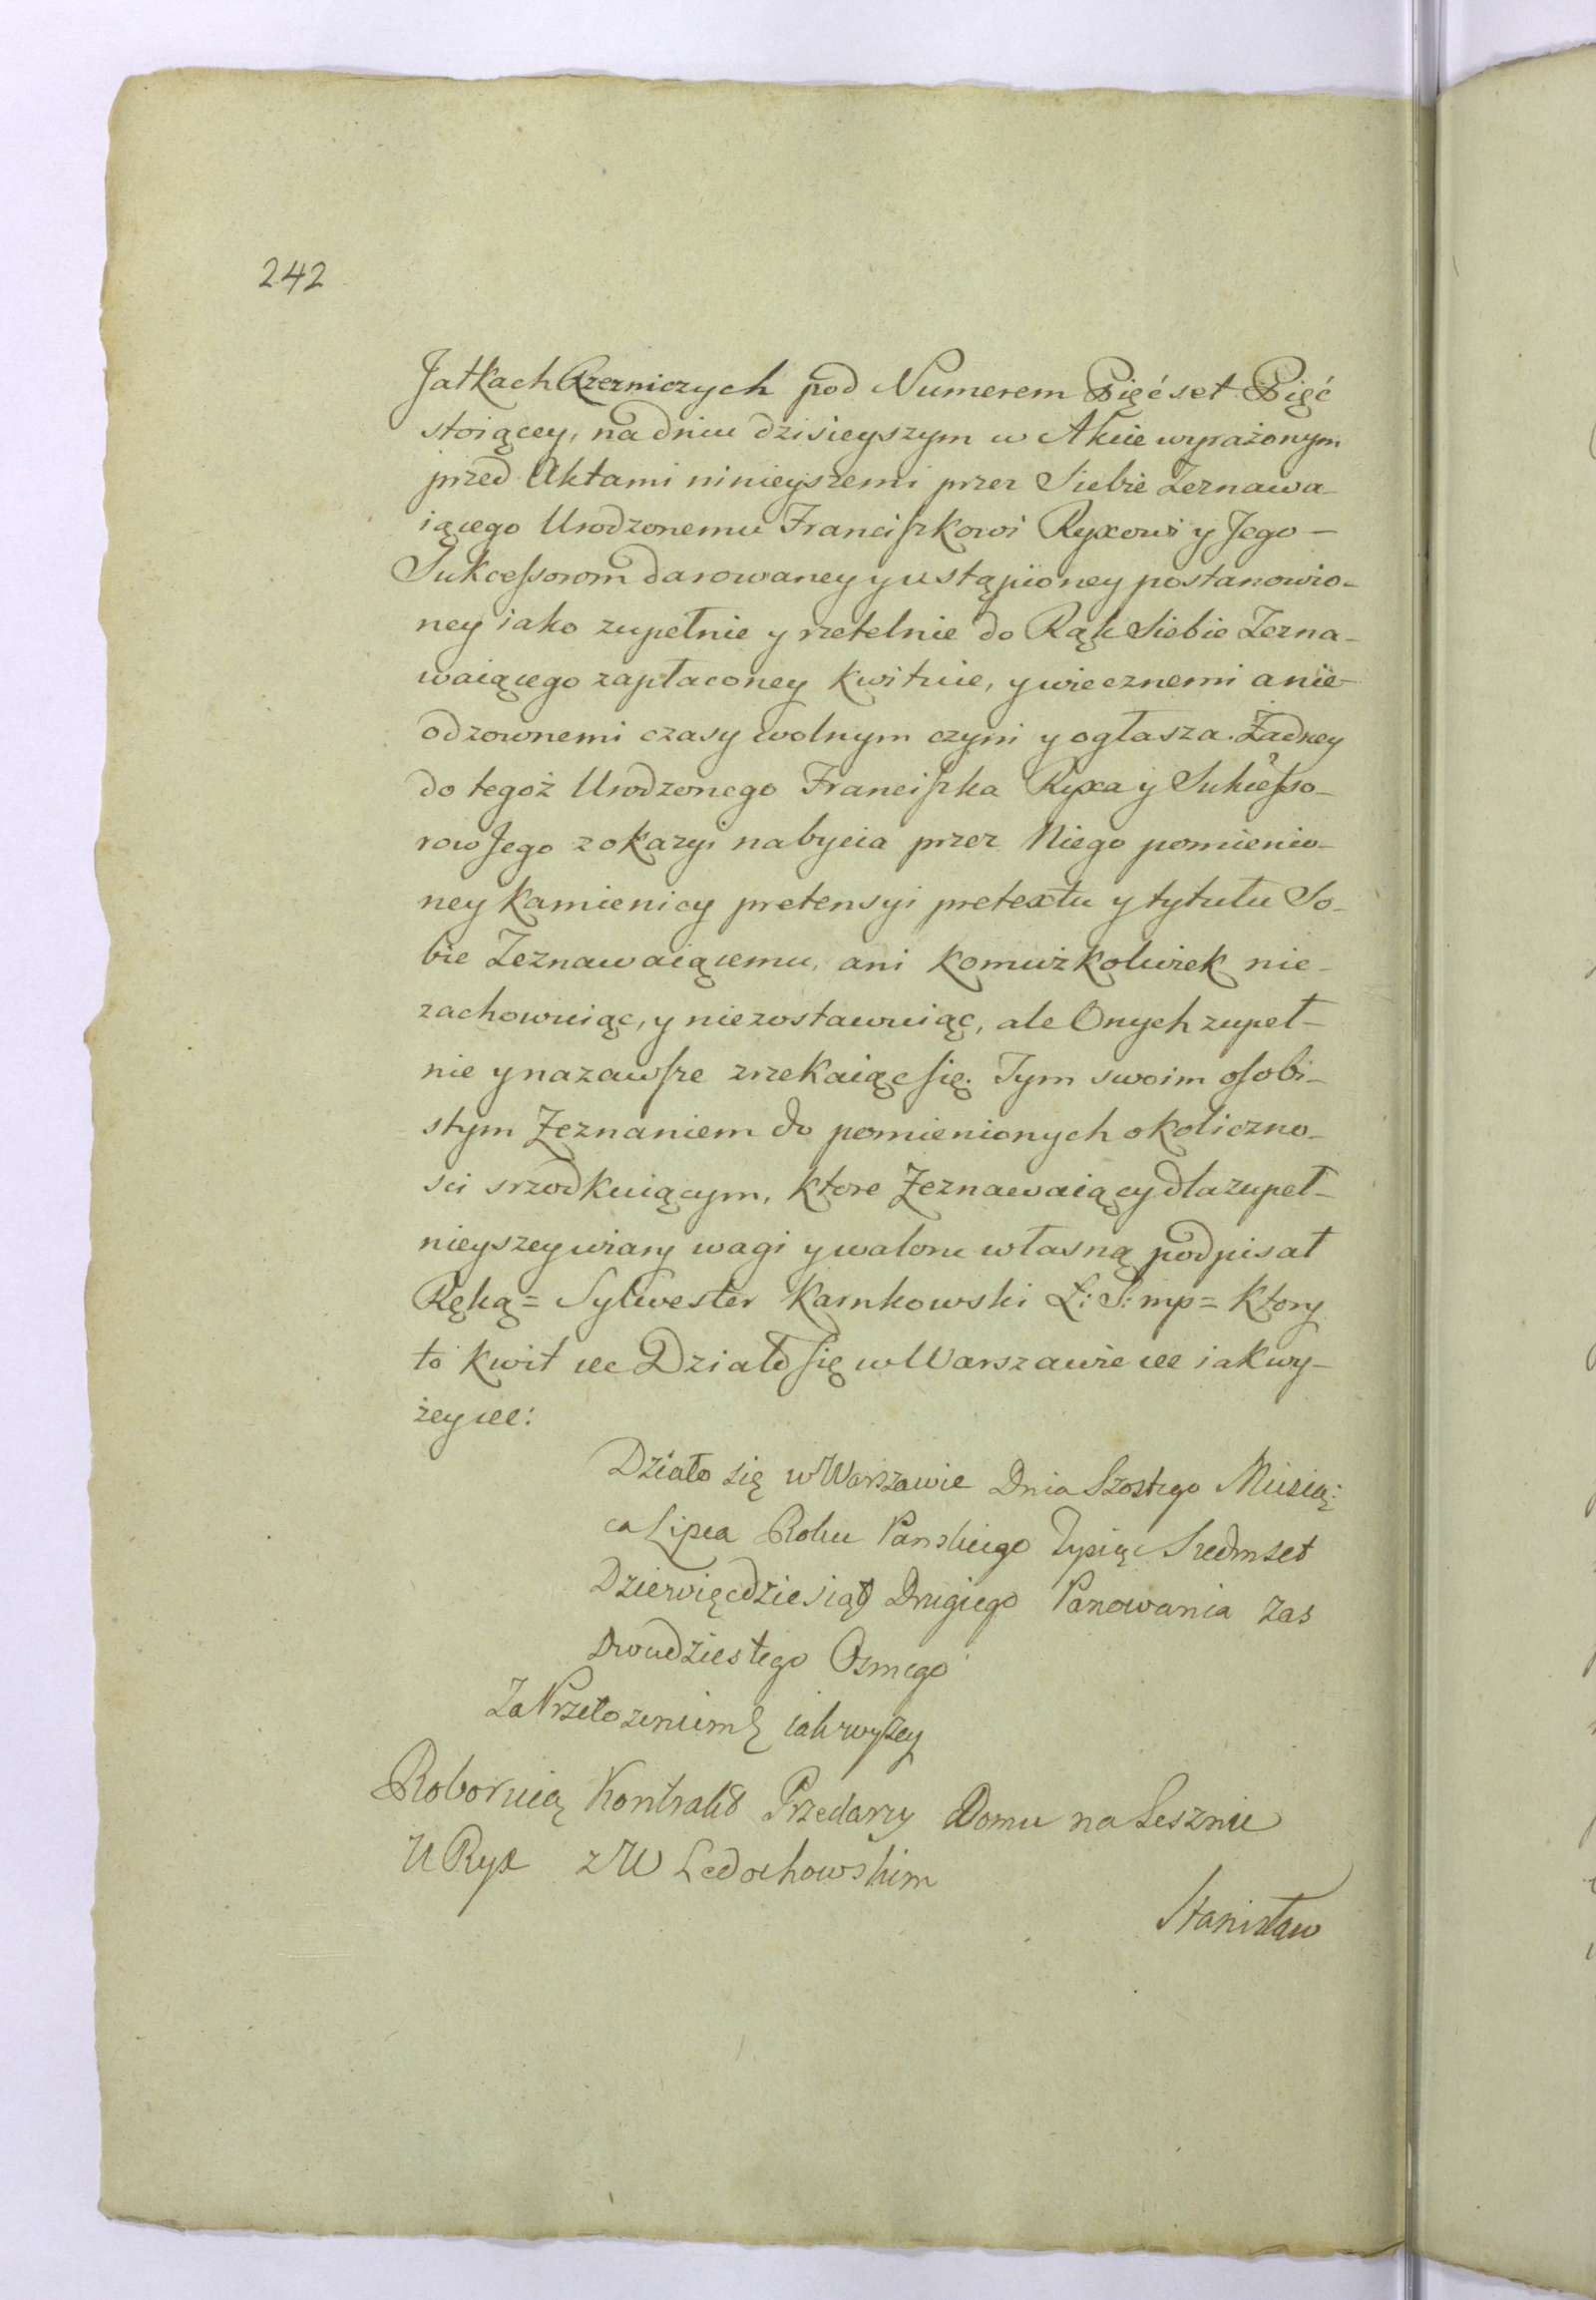 242
Jatkach Rzezniczych pod Numerem Pięćset Pięć
stoiącey, na dniu dzisieyszym w Akcie wyrażonym
przed Aktami ninieyszemi przez Siebie Zeznawa-
iącego Urodzonemu Franciszkowi Ryxowi y Jego -
Sukcessorom darowaney y ustąpioney postanowio-
ney iako zupełnie y rzetelnie do Rąk Siebie Zezna-
waiącego zapłaconey kwituie, y wiecznemi a nie-
odzownemi czasy wolnym czyni y ogłasza. Żadney
do tegoż Urodzonego Franciszka Ryxa y Sukcesso-
row Jego z okazyi nabycia przez Niego pomienio-
ney Kamienicy pretensyi pretextu y tytułu So-
bie Zeznawaiącemu, ani komużkolwiek nie-
zachowuiąc, y niezostawuiąc, ale Onych zupeł-
nie y nazawsze zrzekaiąc się. Tym swoim osobi-
stym Zeznaniem do pomienionych okoliczno-
sci srzodkuiącym, ktore Zeznawaiący dla zupeł-
nieyszey wiary wagi y waloru własną podpisał
Ręką = Sylwester Karnkowski L: S: mp = Ktory
to kwit etc Działo się w Warszawie etc iak wy-
żey etc:
Działo się w Warszawie Dnia Szostego Miesią:
ca Lipca Roku Panskiego Tysiąc Siedmset
Dziewięcdziesiąt Drugiego Panowania Zas
Dwudziestego Osmego
Za Przełozeniem iak wyżey
Roboruią Kontrakt Przedarzy Domu na Lesznie
U Ryx z W Ledochowskim
Stanisław